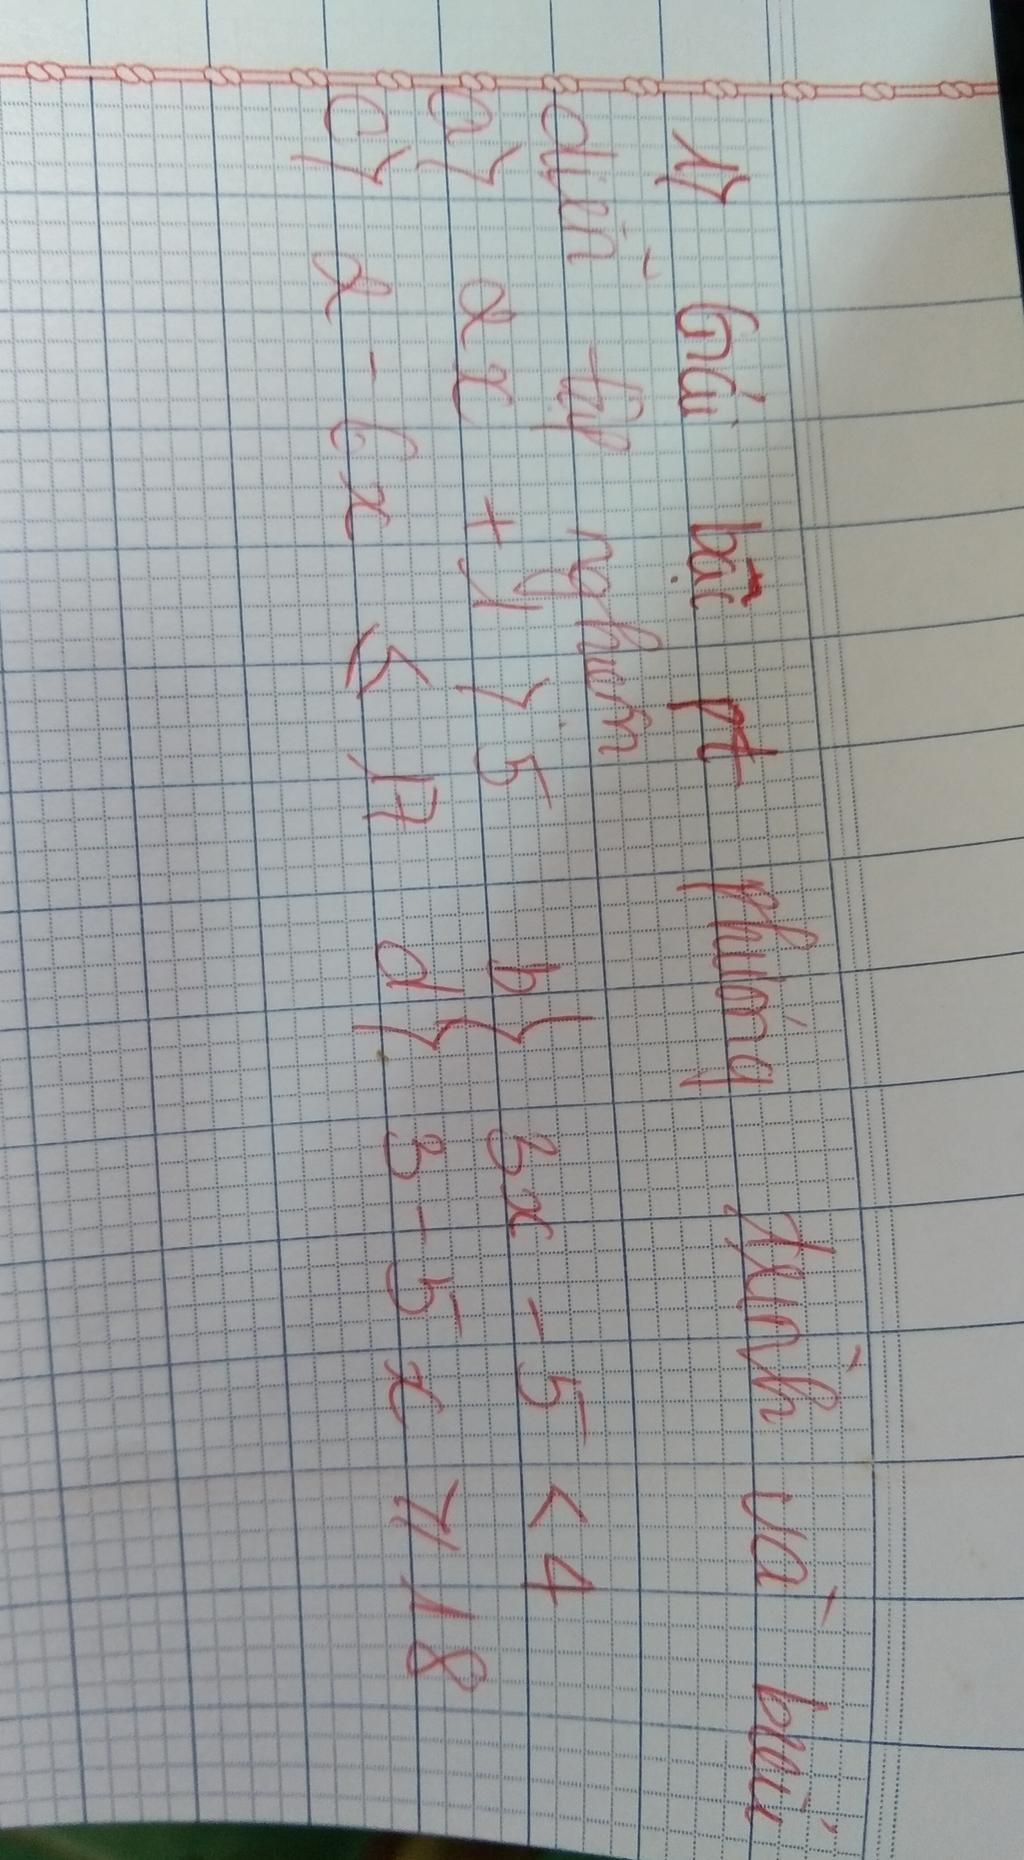 1) Giải bất pt phương trình và biểu
diễn tập nghiệm
a) 2x + 1 > 5 b) 3x - 5 < 4
c) 2 - 6x ⩽ 17 d) 3 - 5x ⩾ 18